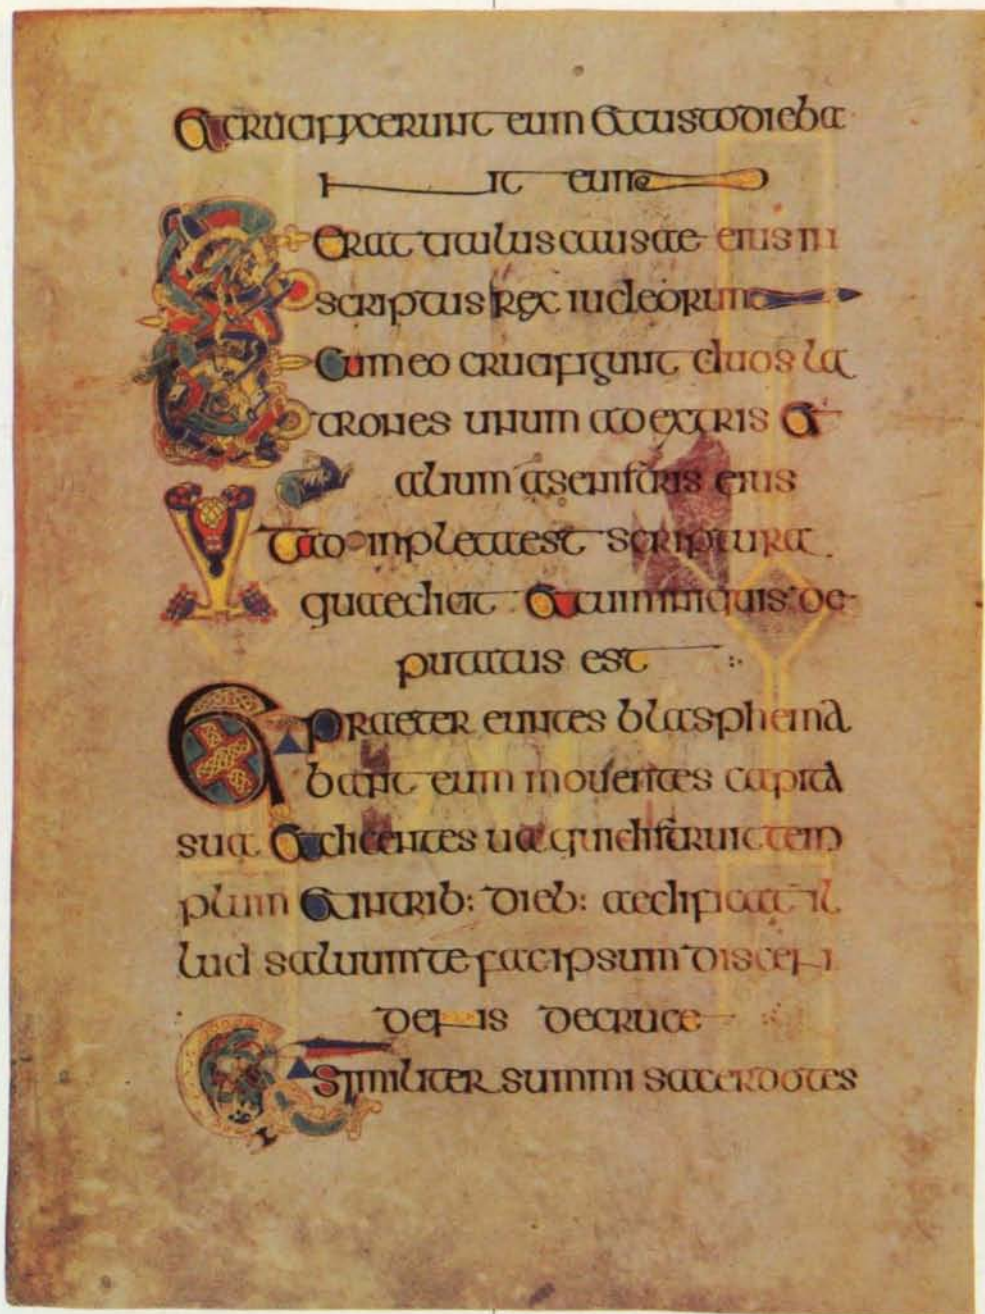 Et crucifixerunt eum et custodieba
nt eum
Et erat titulus causae eius in
scriptus rex iudeorum
Et cum eo crucifigunt duos la
trones unum adextris et
alium asenistris eius
Et adinpleta est scriptura
quae dicit et cum iniquis de
putatus est
Et praeter euntes blasphema
bant eum moventes capita
sua et dicentes va qui distruit tem
plum et in trib: dieb: aedificat il
lud salvum te fac ipsum discen
dens decruce
Et similiter summi sacerdotes